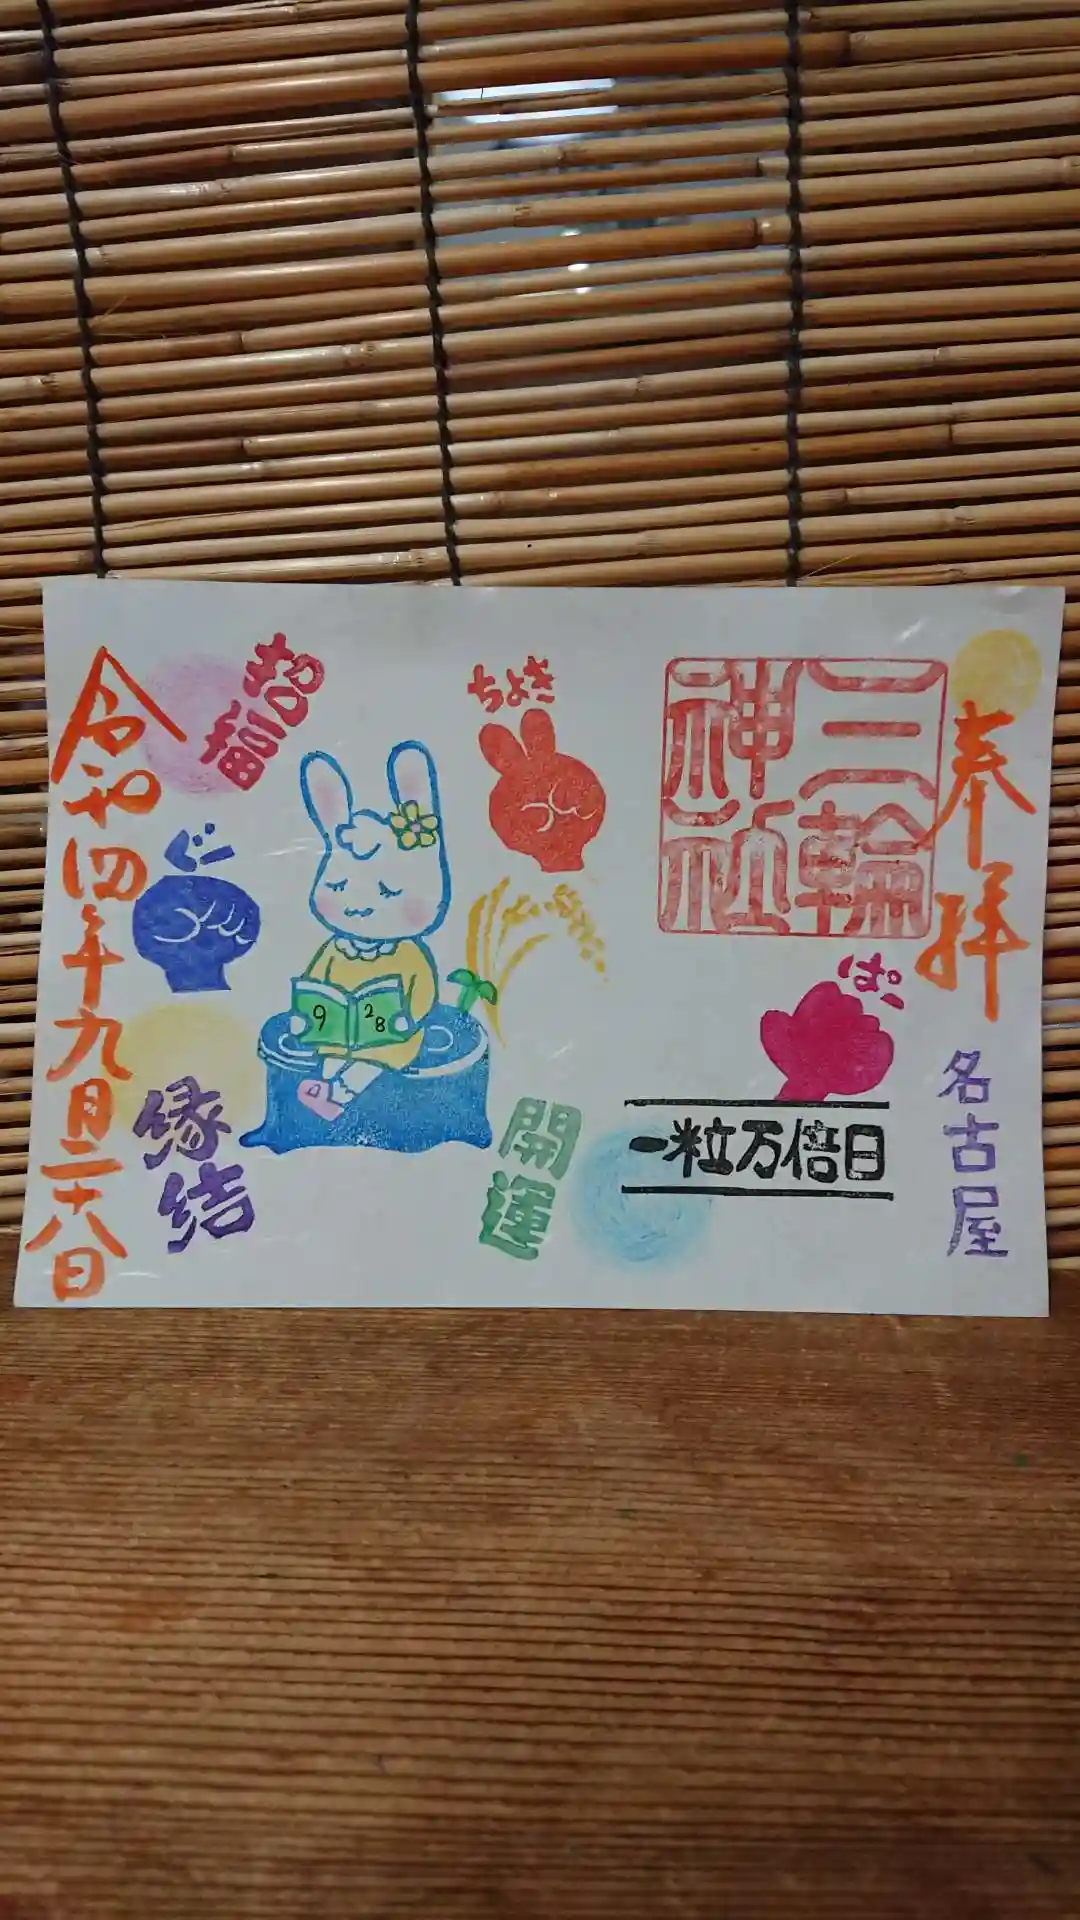 奉拝
名古屋
三輪
神社
ぱー
一粒万倍日
ちょき
開運
招福
9
28
ぐー
縁結
令和四年九月二十八日